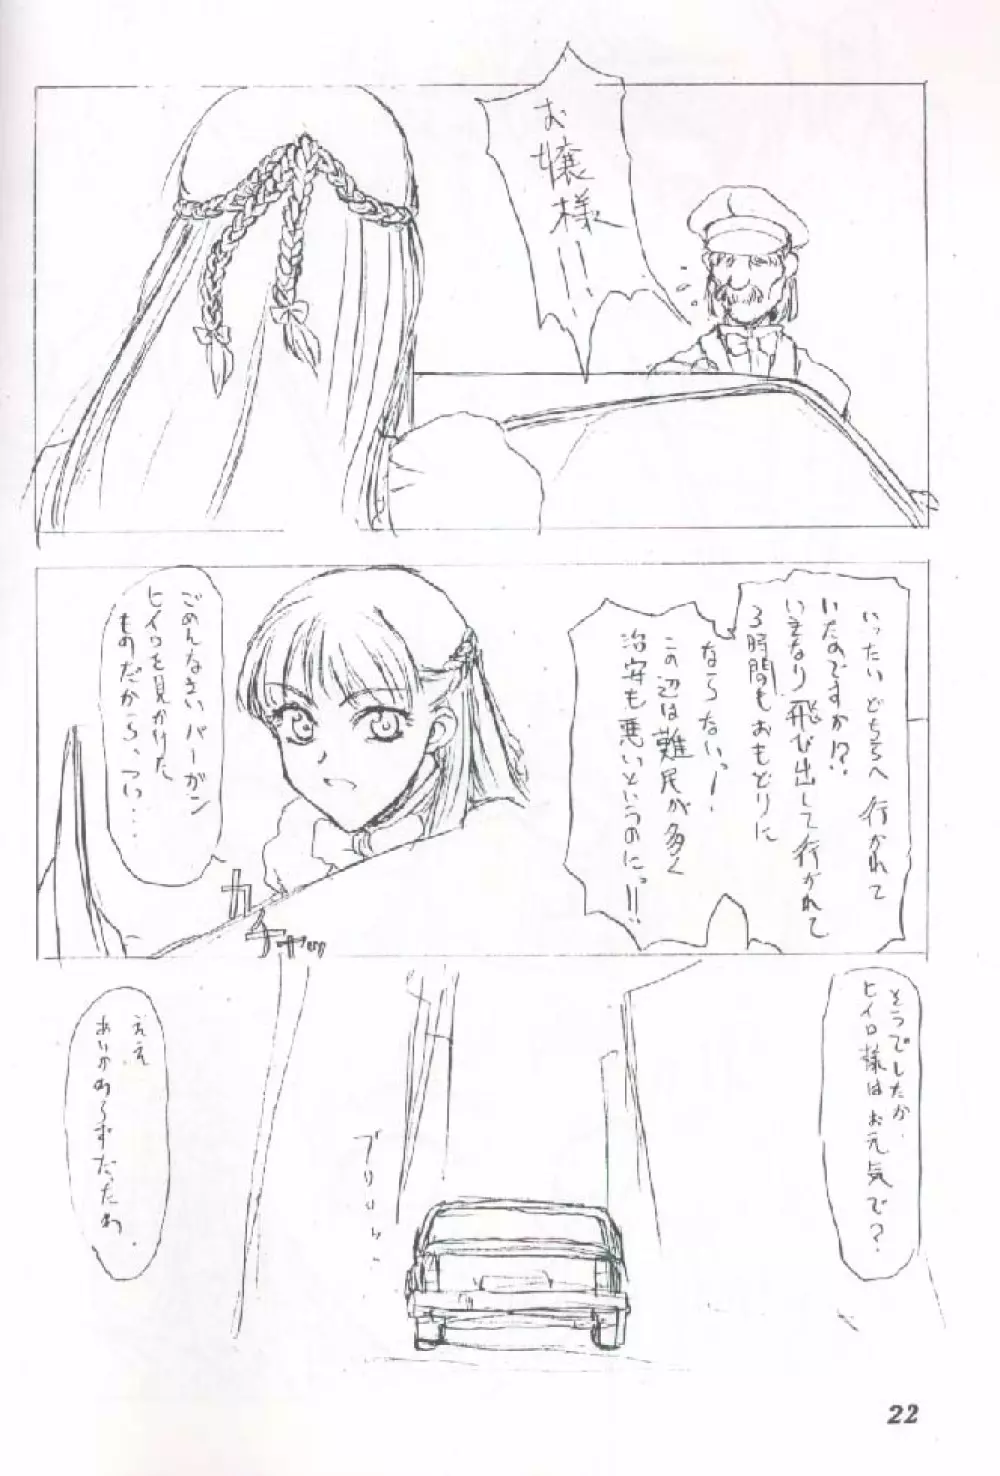 お嬢様
いったいどちらへ行かれて
いたのですか!?
いきなり飛び出して行かれて
3時間もおもどりに
ならないっ!
この辺は難民が多く
治安も悪いというのにっ!!
ごめんなさいパーガン
ヒイロを見かけた
ものだから、つい…
カチャ
そうでしたか.
ヒイロ様はお元気で?
ブロロロ
ええ
あいかわらずだったわ.
22